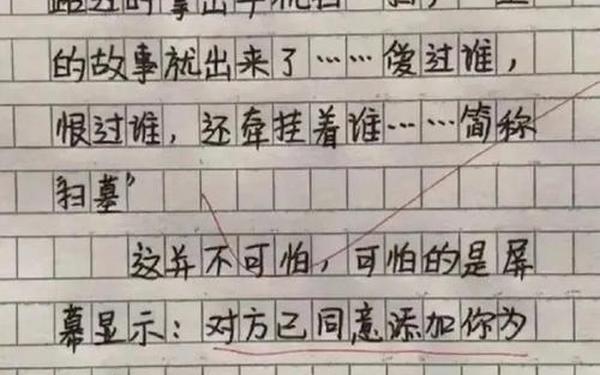 路过的拿出手机扫
的故事就出来了……爱过谁，
恨过谁，还牵挂着谁……简称
“扫墓”
这并不可怕，可怕的是屏
幕显示：对方已同意添加你为